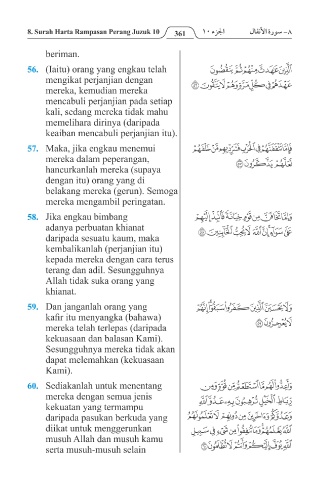 8. Surah Harta Rampasan Perang Juzuk 10
361
الجزء ١٠
٨ – سورة الأنفال
beriman.
56. (Iaitu) orang yang engkau telah
mengikat perjanjian dengan
mereka, kemudian mereka
mencabuli perjanjian pada setiap
kali, sedang mereka tidak mahu
memelihara dirinya (daripada
keaiban mencabuli perjanjian itu).
الَّذِينَ عَهَدتَّ مِنْهُمْ ثُمَّ يَنقُضُونَ
عَهْدَهُمْ فِي كُلِّ مَرَّةٍ وَهُمْ لَا يَتَّقُونَ ۝٥٦
57. Maka, jika engkau menemui
mereka dalam peperangan,
hancurkanlah mereka (supaya
dengan itu) orang yang di
belakang mereka (gerun). Semoga
mereka mengambil peringatan.
فَإِمَّا تَثْقَفَنَّهُمْ فِي الْحَرْبِ فَشَرِّدْ بِهِم مَّنْ خَلْفَهُمْ
لَعَلَّهُمْ يَذَّكَّرُونَ ۝٥٧
58. Jika engkau bimbang
adanya perbuatan khianat
daripada sesuatu kaum, maka
kembalikanlah (perjanjian itu)
kepada mereka dengan cara terus
terang dan adil. Sesungguhnya
Allah tidak suka orang yang
khianat.
وَإِمَّا تَخَافَنَّ مِن قَوْمٍ خِيَانَةً فَانبِذْ إِلَيْهِمْ
عَلَى سَوَاءٍ إِنَّ اللَّهَ لَا يُحِبُّ الْخَائِنِينَ ۝٥٨
59. Dan janganlah orang yang
kafir itu menyangka (bahawa)
mereka telah terlepas (daripada
kekuasaan dan balasan Kami).
Sesungguhnya mereka tidak akan
dapat melemahkan (kekuasaan
Kami).
وَلَا يَحْسَبَنَّ الَّذِينَ كَفَرُوا سَبَقُوا إِنَّهُمْ
لَا يُعْجِزُونَ ۝٥٩
60. Sediakanlah untuk menentang
mereka dengan semua jenis
kekuatan yang termampu
daripada pasukan berkuda yang
diikat untuk menggerunkan
musuh Allah dan musuh kamu
serta musuh-musuh selain
وَأَعِدُّوا لَهُم مَّا اسْتَطَعْتُم مِّن قُوَّةٍ وَمِن
رِّبَاطِ الْخَيْلِ تُرْهِبُونَ بِهِ عَدُوَّ اللَّهِ
وَعَدُوَّكُمْ وَءَاخَرِينَ مِن دُونِهِمْ لَا تَعْلَمُونَهُمُ
اللَّهُ يَعْلَمُهُمْ وَمَا تُنفِقُوا مِن شَيْءٍ فِي سَبِيلِ
اللَّهِ يُوَفَّ إِلَيْكُمْ وَأَنتُمْ لَا تُظْلَمُونَ ۝٦٠